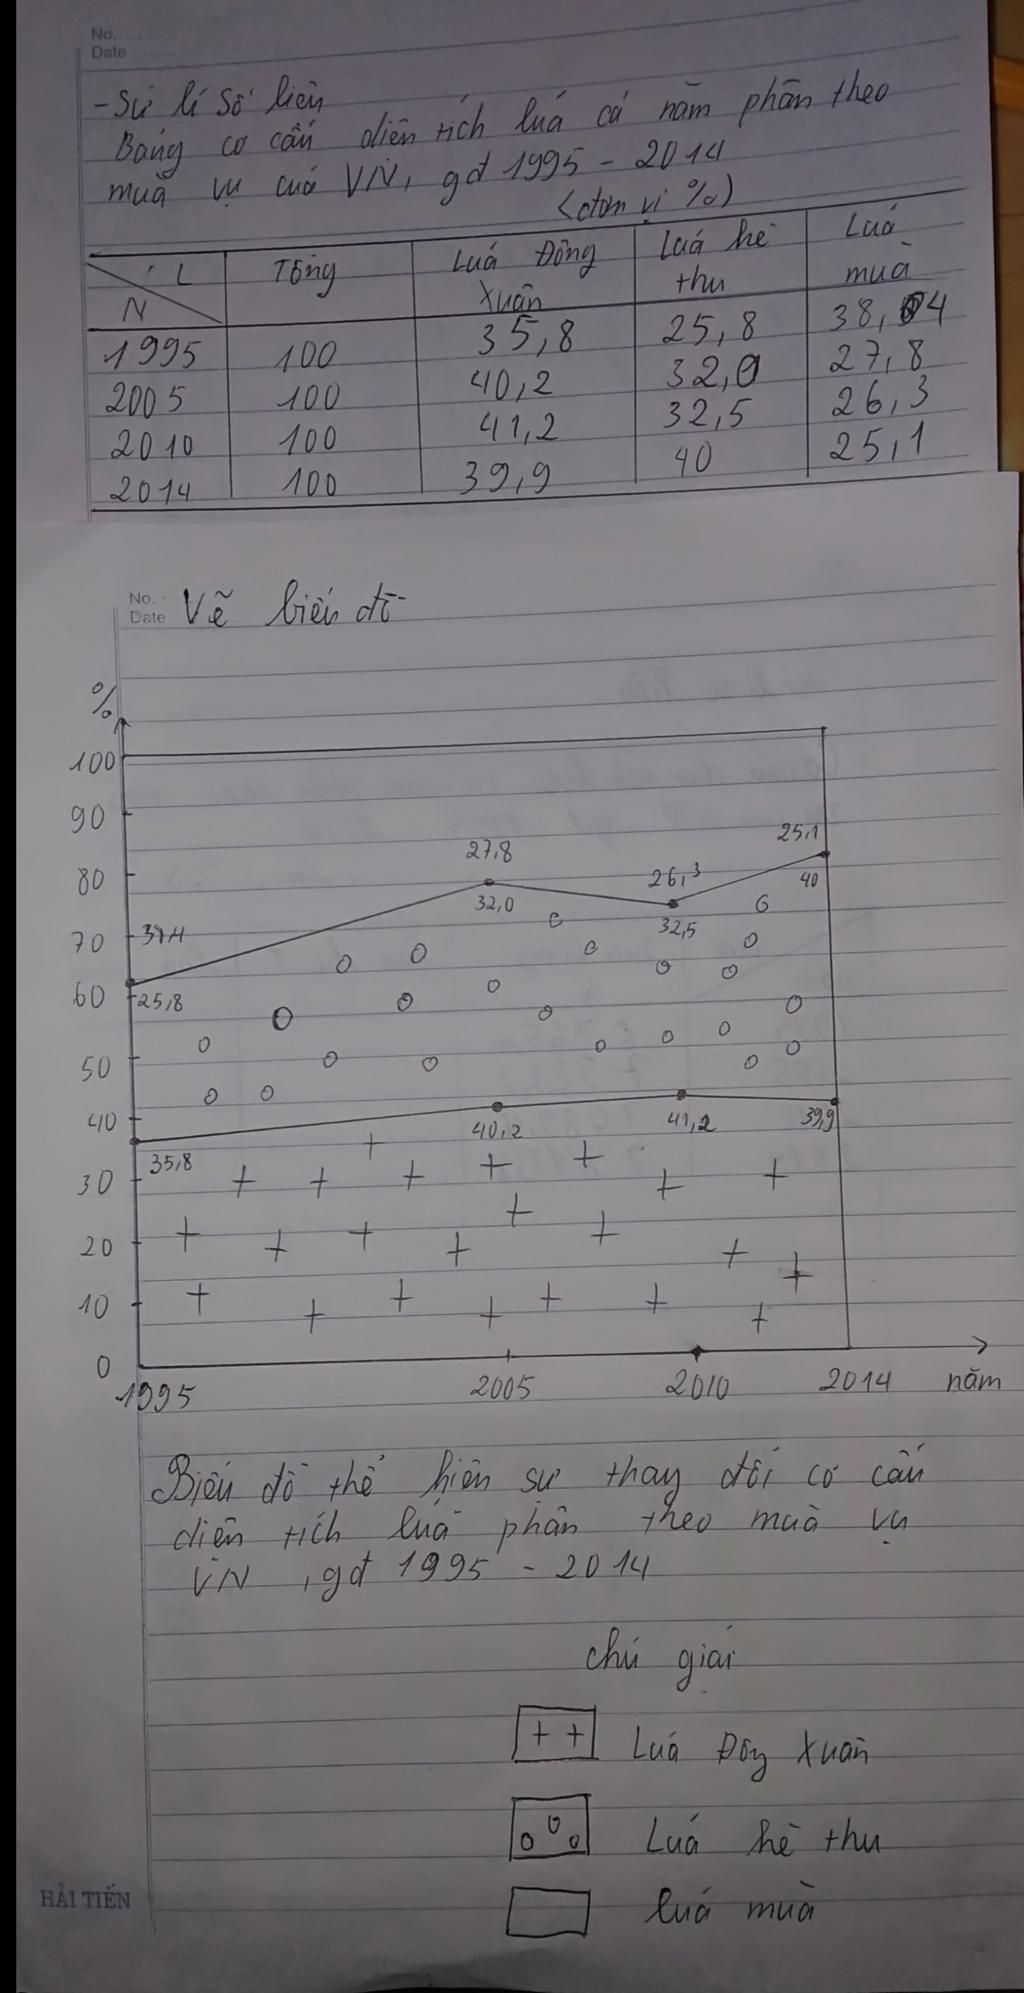 No.
Date
- Sử lí số liệu
Bảng cơ cấu diện tích lúa cả năm phân theo
mùa vụ của VN, gđ 1995 - 2014
(đơn vị %)
L
N
Tổng
Lúa Đông
Xuân
Lúa hè
thu
Lúa
mùa
1995 100 35,8 25,8 38,4
2005 100 40,2 32,0 27,8
2010 100 41,2 32,5 26,3
2014 100 39,9 40 25,1
No.
Date
Vẽ biểu đồ
%
100
90
80
70
60
50
40
30
20
10
0
27,8
32,0
26,3
32,5
25,1
40
25,8
35,8
40,2
41,2
39,9
1995 2005 2010 2014 năm
Biểu đồ thể hiện sự thay đổi cơ cấu
diện tích lúa phân theo mùa vụ
VN, gđ 1995 - 2014
chú giải
Lúa Đông Xuân
Lúa hè thu
lúa mùa
HẢI TIẾN